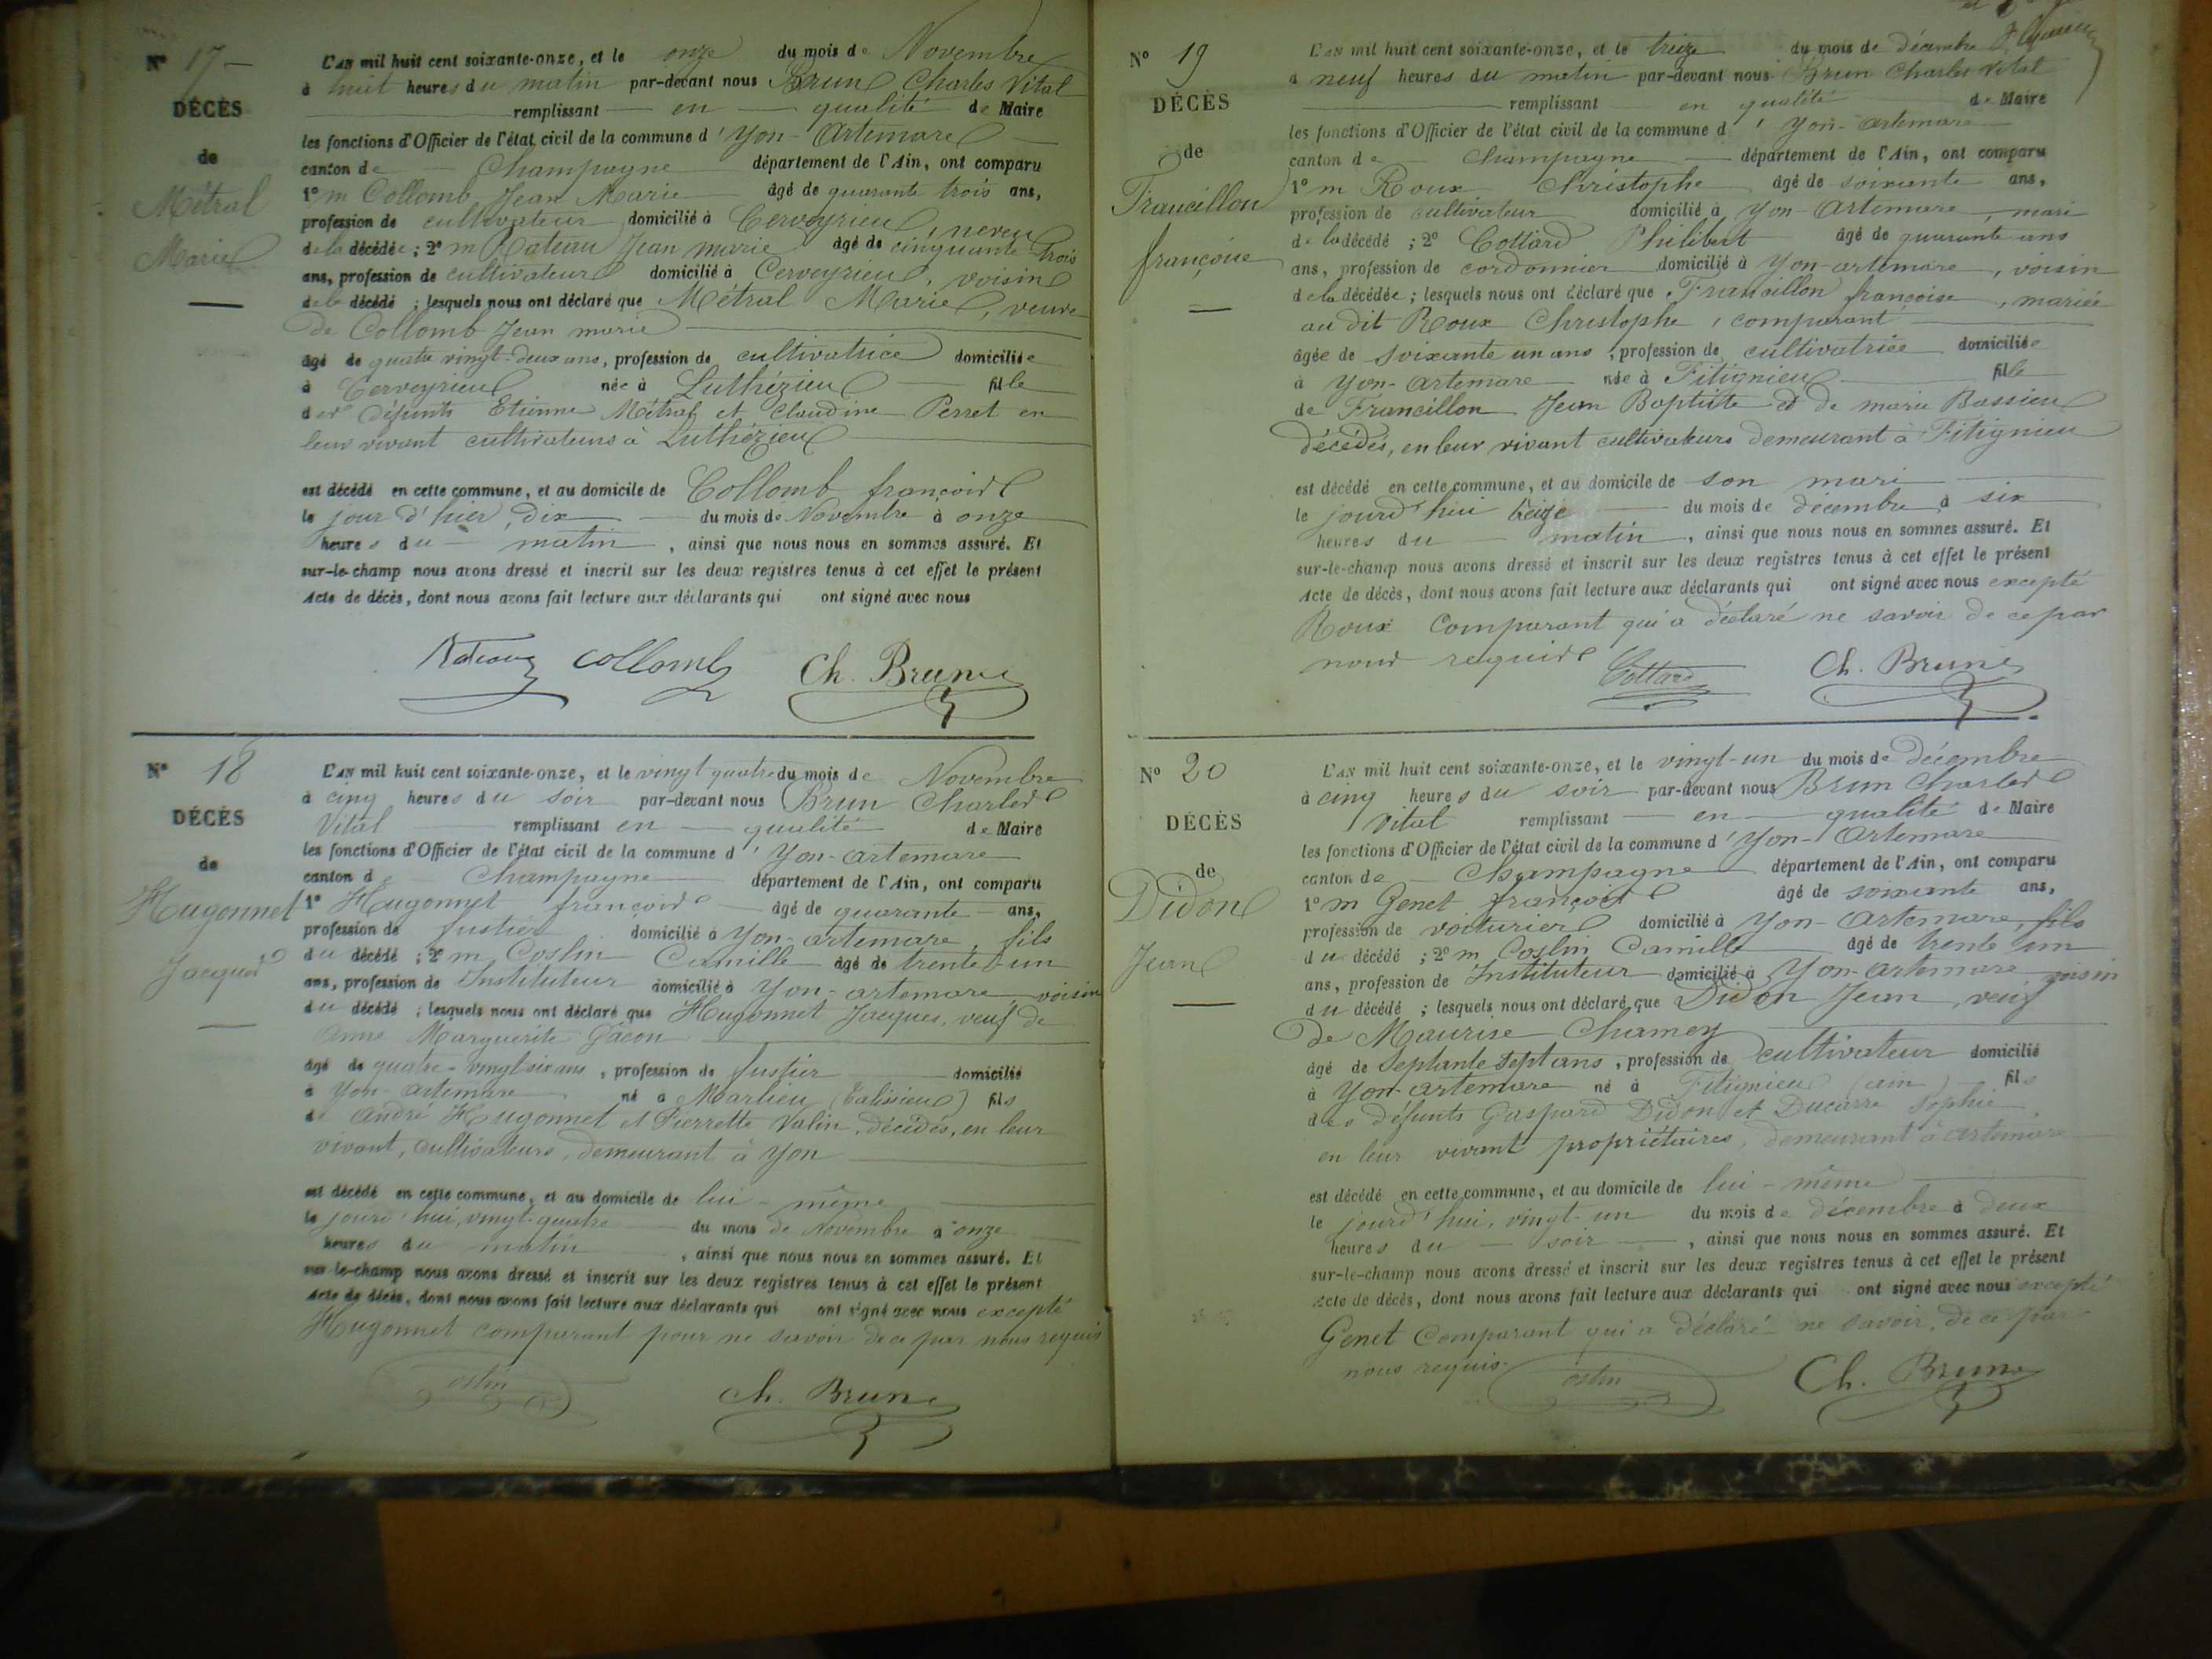 N° 17
DÉCÈS
de
Métral
Marie
L'AN mil huit cent soixante-onze, et le onze du mois de Novembre
à huit heures du matin par-devant nous Brun Charles Vital
remplissant en qualité de Maire
les fonctions d'Officier de l'état civil de la commune d'Yon-Artemare
canton de Champagne département de l'Ain, ont comparu
1° m Collomb Jean Marie âgé de quarante trois ans,
profession de cultivateur domicilié à Cerveyrieu, neveu
de la décédée ; 2° m Rateau Jean marie âgé de cinquante trois
ans, profession de cultivateur domicilié à Cerveyrieu, voisin
de la décédé ; lesquels nous ont déclaré que Métral Marie, veuve
de Collomb Jean marie
âgé de quatre vingt-deux ans, profession de cultivatrice domiciliée
à Cerveyrieu née à Luthézieu fille
des défunts Etienne Métral et Claudine Perret en
leur vivant cultivateurs à Luthézieu
est décédé en cette commune, et au domicile de Collomb françois
le jour d'hier, dix du mois de Novembre à onze
heures du matin, ainsi que nous nous en sommes assuré. Et
sur-le-champ nous avons dressé et inscrit sur les deux registres tenus à cet effet le présent
Acte de décès, dont nous avons fait lecture aux déclarants qui ont signé avec nous
Collomb Ch. Brun
N° 18
DÉCÈS
de
Hugonnet
Jacques
L'AN mil huit cent soixante-onze, et le vingt quatre du mois de Novembre
à cinq heures du soir par-devant nous Brun Charles
Vital remplissant en qualité de Maire
les fonctions d'Officier de l'état civil de la commune d'Yon-artemare
canton de Champagne département de l'Ain, ont comparu
1° Hugonnet françois âgé de quarante ans,
profession de fustier domicilié à Yon-artemare, fils
du décédé ; 2° m Coslin Camille âgé de trente-un
ans, profession de Instituteur domicilié à Yon-artemare, voisin
du décédé ; lesquels nous ont déclaré que Hugonnet Jacques, veuf de
Anne Marguerite Gacon
âgé de quatre-vingt six ans, profession de fustier domicilié
à Yon-artemare né à Marlieu (Talissieu) fils
de André Hugonnet et Pierrette Valin, décédés, en leur
vivant, cultivateurs, demeurant à Yon
est décédé en cette commune, et au domicile de lui-même
le jourd'hui, vingt-quatre du mois de Novembre à onze
heures du matin, ainsi que nous nous en sommes assuré. Et
sur-le-champ nous avons dressé et inscrit sur les deux registres tenus à cet effet le présent
Acte de décès, dont nous avons fait lecture aux déclarants qui ont signé avec nous excepté
Hugonnet comparant pour ne savoir de ce par nous requis
Ch. Brun
N° 19
DÉCÈS
de
Francillon
françoise
L'AN mil huit cent soixante-onze, et le treize du mois de décembre
à neuf heures du matin par-devant nous Brun Charles Vital
remplissant en qualité de Maire
les fonctions d'Officier de l'état civil de la commune d'Yon-artemare
canton de Champagne département de l'Ain, ont comparu
1° m Roux Christophe âgé de soixante ans,
profession de cultivateur domicilié à Yon-Artemare, mari
de la décédé ; 2° Cottard Philibert âgé de quarante ans
ans, profession de cordonnier domicilié à Yon-artemare, voisin
de la décédée ; lesquels nous ont déclaré que Francillon françoise, mariée
au dit Roux Christophe, comparant
âgée de soixante un ans, profession de cultivatrice domiciliée
à Yon-Artemare née à Fitignieu fille
de Francillon Jean Baptiste et de marie Bassieu
décédés, en leur vivant cultivateurs demeurant à Fitignieu
est décédé en cette commune, et au domicile de son mari
le jourd'hui treize du mois de décembre à six
heures du matin, ainsi que nous nous en sommes assuré. Et
sur-le-champ nous avons dressé et inscrit sur les deux registres tenus à cet effet le présent
Acte de décès, dont nous avons fait lecture aux déclarants qui ont signé avec nous excepté
Roux Comparant qui a déclaré ne savoir de ce par
nous requis
Cottard Ch. Brun
N° 20
DÉCÈS
de
Didon
Jean
L'AN mil huit cent soixante-onze, et le vingt-un du mois de décembre
à cinq heures du soir par-devant nous Brun Charles
Vital remplissant en qualité de Maire
les fonctions d'Officier de l'état civil de la commune d'Yon-Artemare
canton de Champagne département de l'Ain, ont comparu
1° m Genet françois âgé de soixante ans,
profession de voiturier domicilié à Yon-Artemare, fils
du décédé ; 2° m Coslin Camille âgé de trente un
ans, profession de Instituteur domicilié à Yon-Artemare voisin
du décédé ; lesquels nous ont déclaré que Didon Jean, veuf
De Maurise Chamey
âgé de Septante sept ans, profession de cultivateur domicilié
à Yon-artemare né à Fitignieu (ain) fils
des défunts Gaspard Didon et Ducarre Sophie
en leur vivant propriétaires, demeurant à artemare
est décédé en cette commune, et au domicile de lui-même
le jourd'hui, vingt-un du mois de décembre à deux
heures du soir, ainsi que nous nous en sommes assuré. Et
sur-le-champ nous avons dressé et inscrit sur les deux registres tenus à cet effet le présent
Acte de décès, dont nous avons fait lecture aux déclarants qui ont signé avec nous excepté
Genet Comparant qui a déclaré ne savoir, de ce par
nous requis.
Ch. Brun